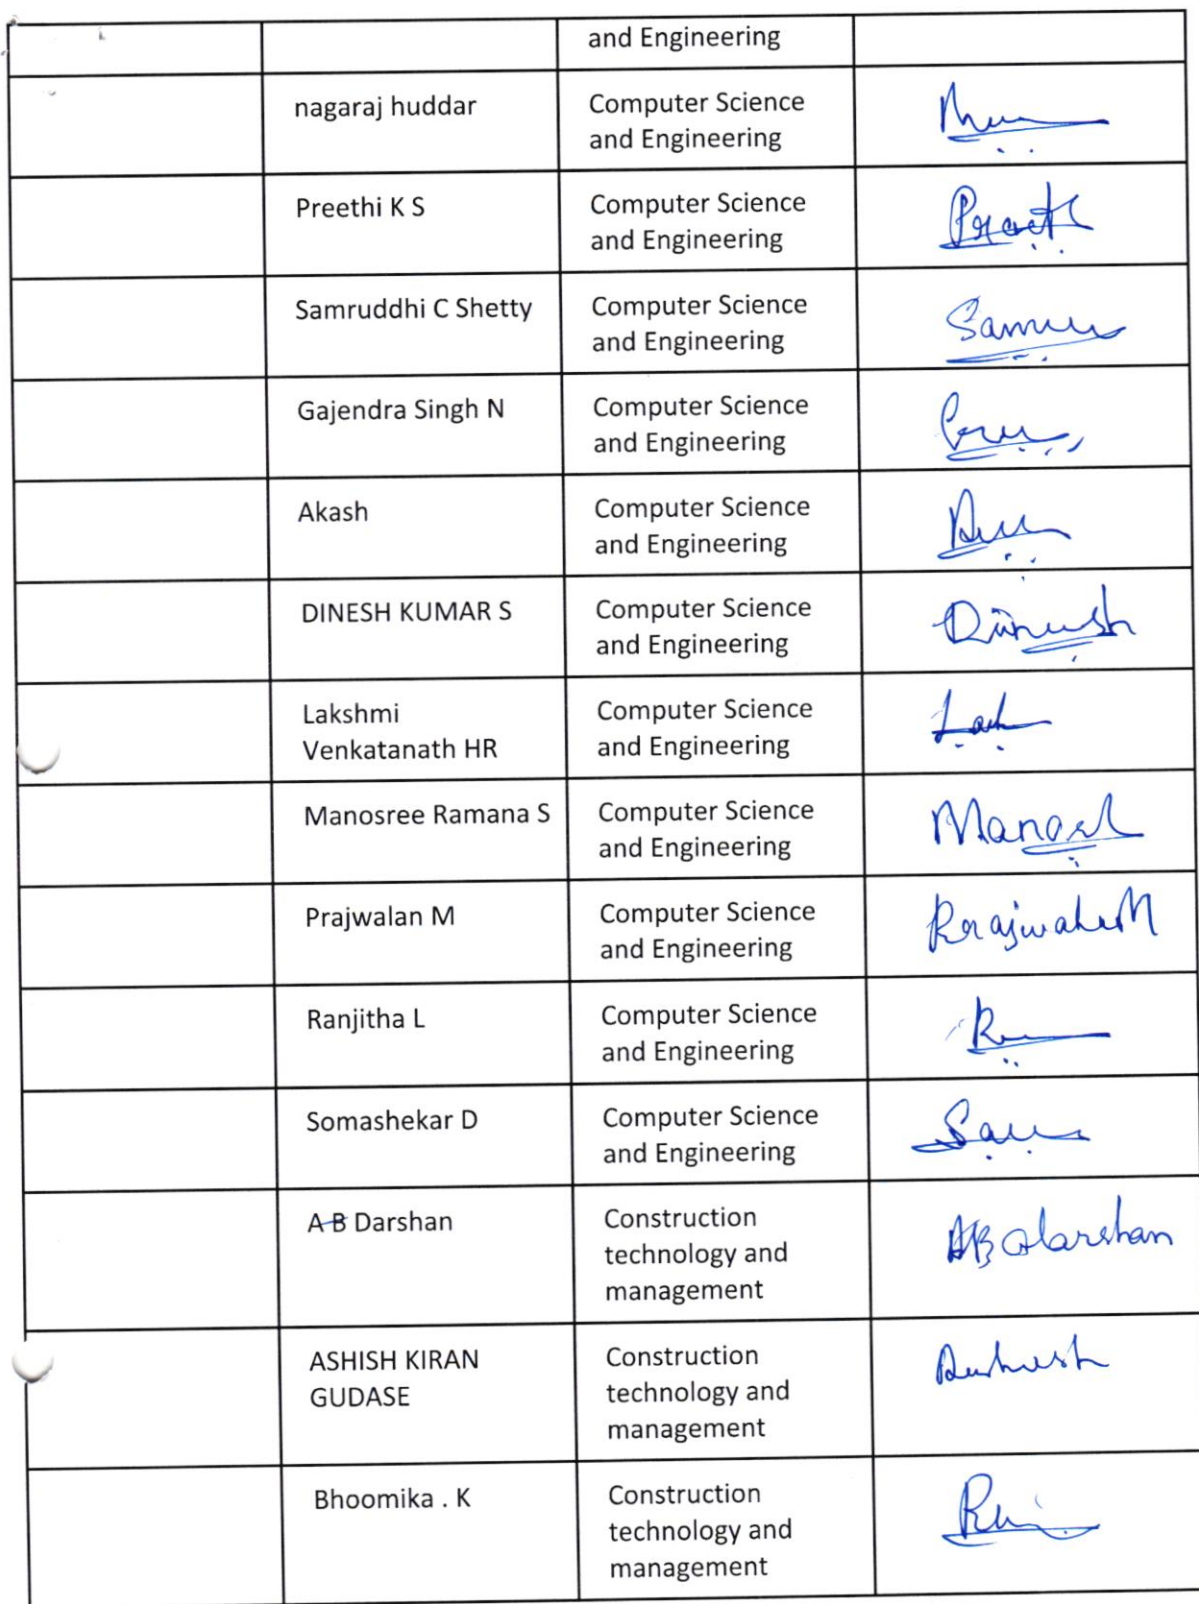 and Engineering
nagaraj huddar
Computer Science
and Engineering
Preethi K S
Computer Science
and Engineering
Samruddhi C Shetty
Computer Science
and Engineering
Gajendra Singh N
Computer Science
and Engineering
Akash
Computer Science
and Engineering
DINESH KUMAR S
Computer Science
and Engineering
Dinesh
Lakshmi
Venkatanath HR
Computer Science
and Engineering
Lak
Manosree Ramana S
Computer Science
and Engineering
Prajwalan M
Computer Science
and Engineering
Ranjitha L
Computer Science
and Engineering
Somashekar D
Computer Science
and Engineering
A B Darshan
Construction
technology and
management
AB Darshan
ASHISH KIRAN
GUDASE
Construction
technology and
management
Bhoomika . K
Construction
technology and
management